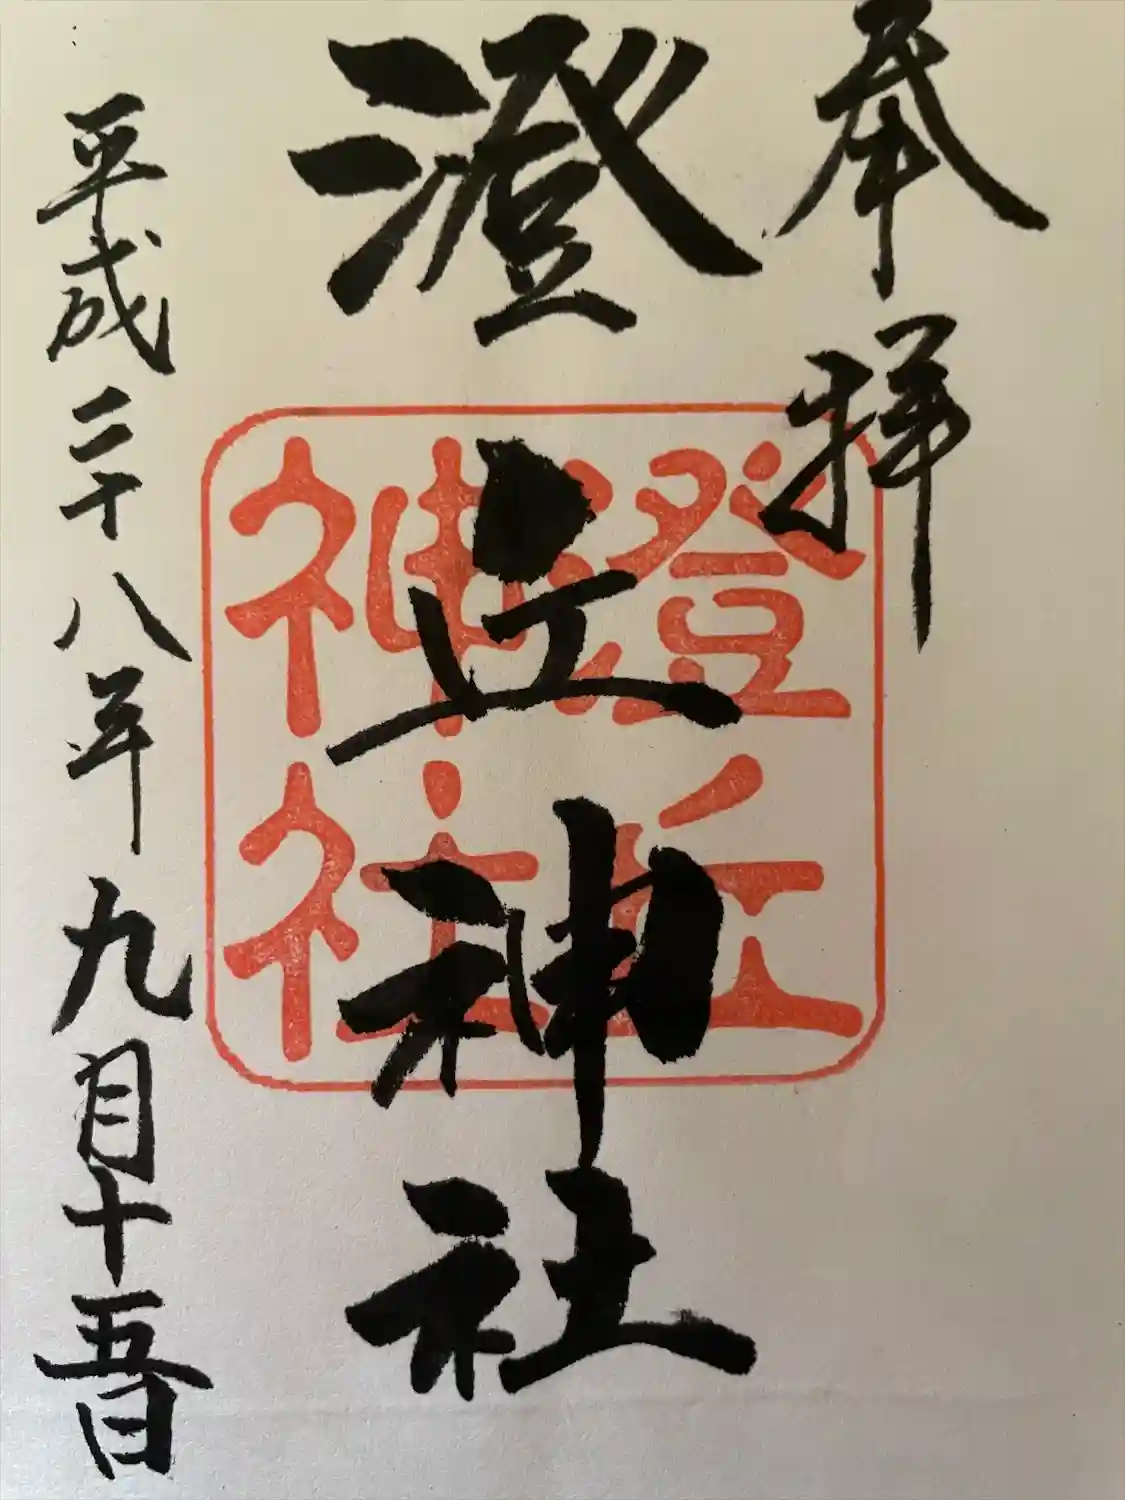 奉拝
澄丘神社
平成二十八年九月十五日
澄丘
神社